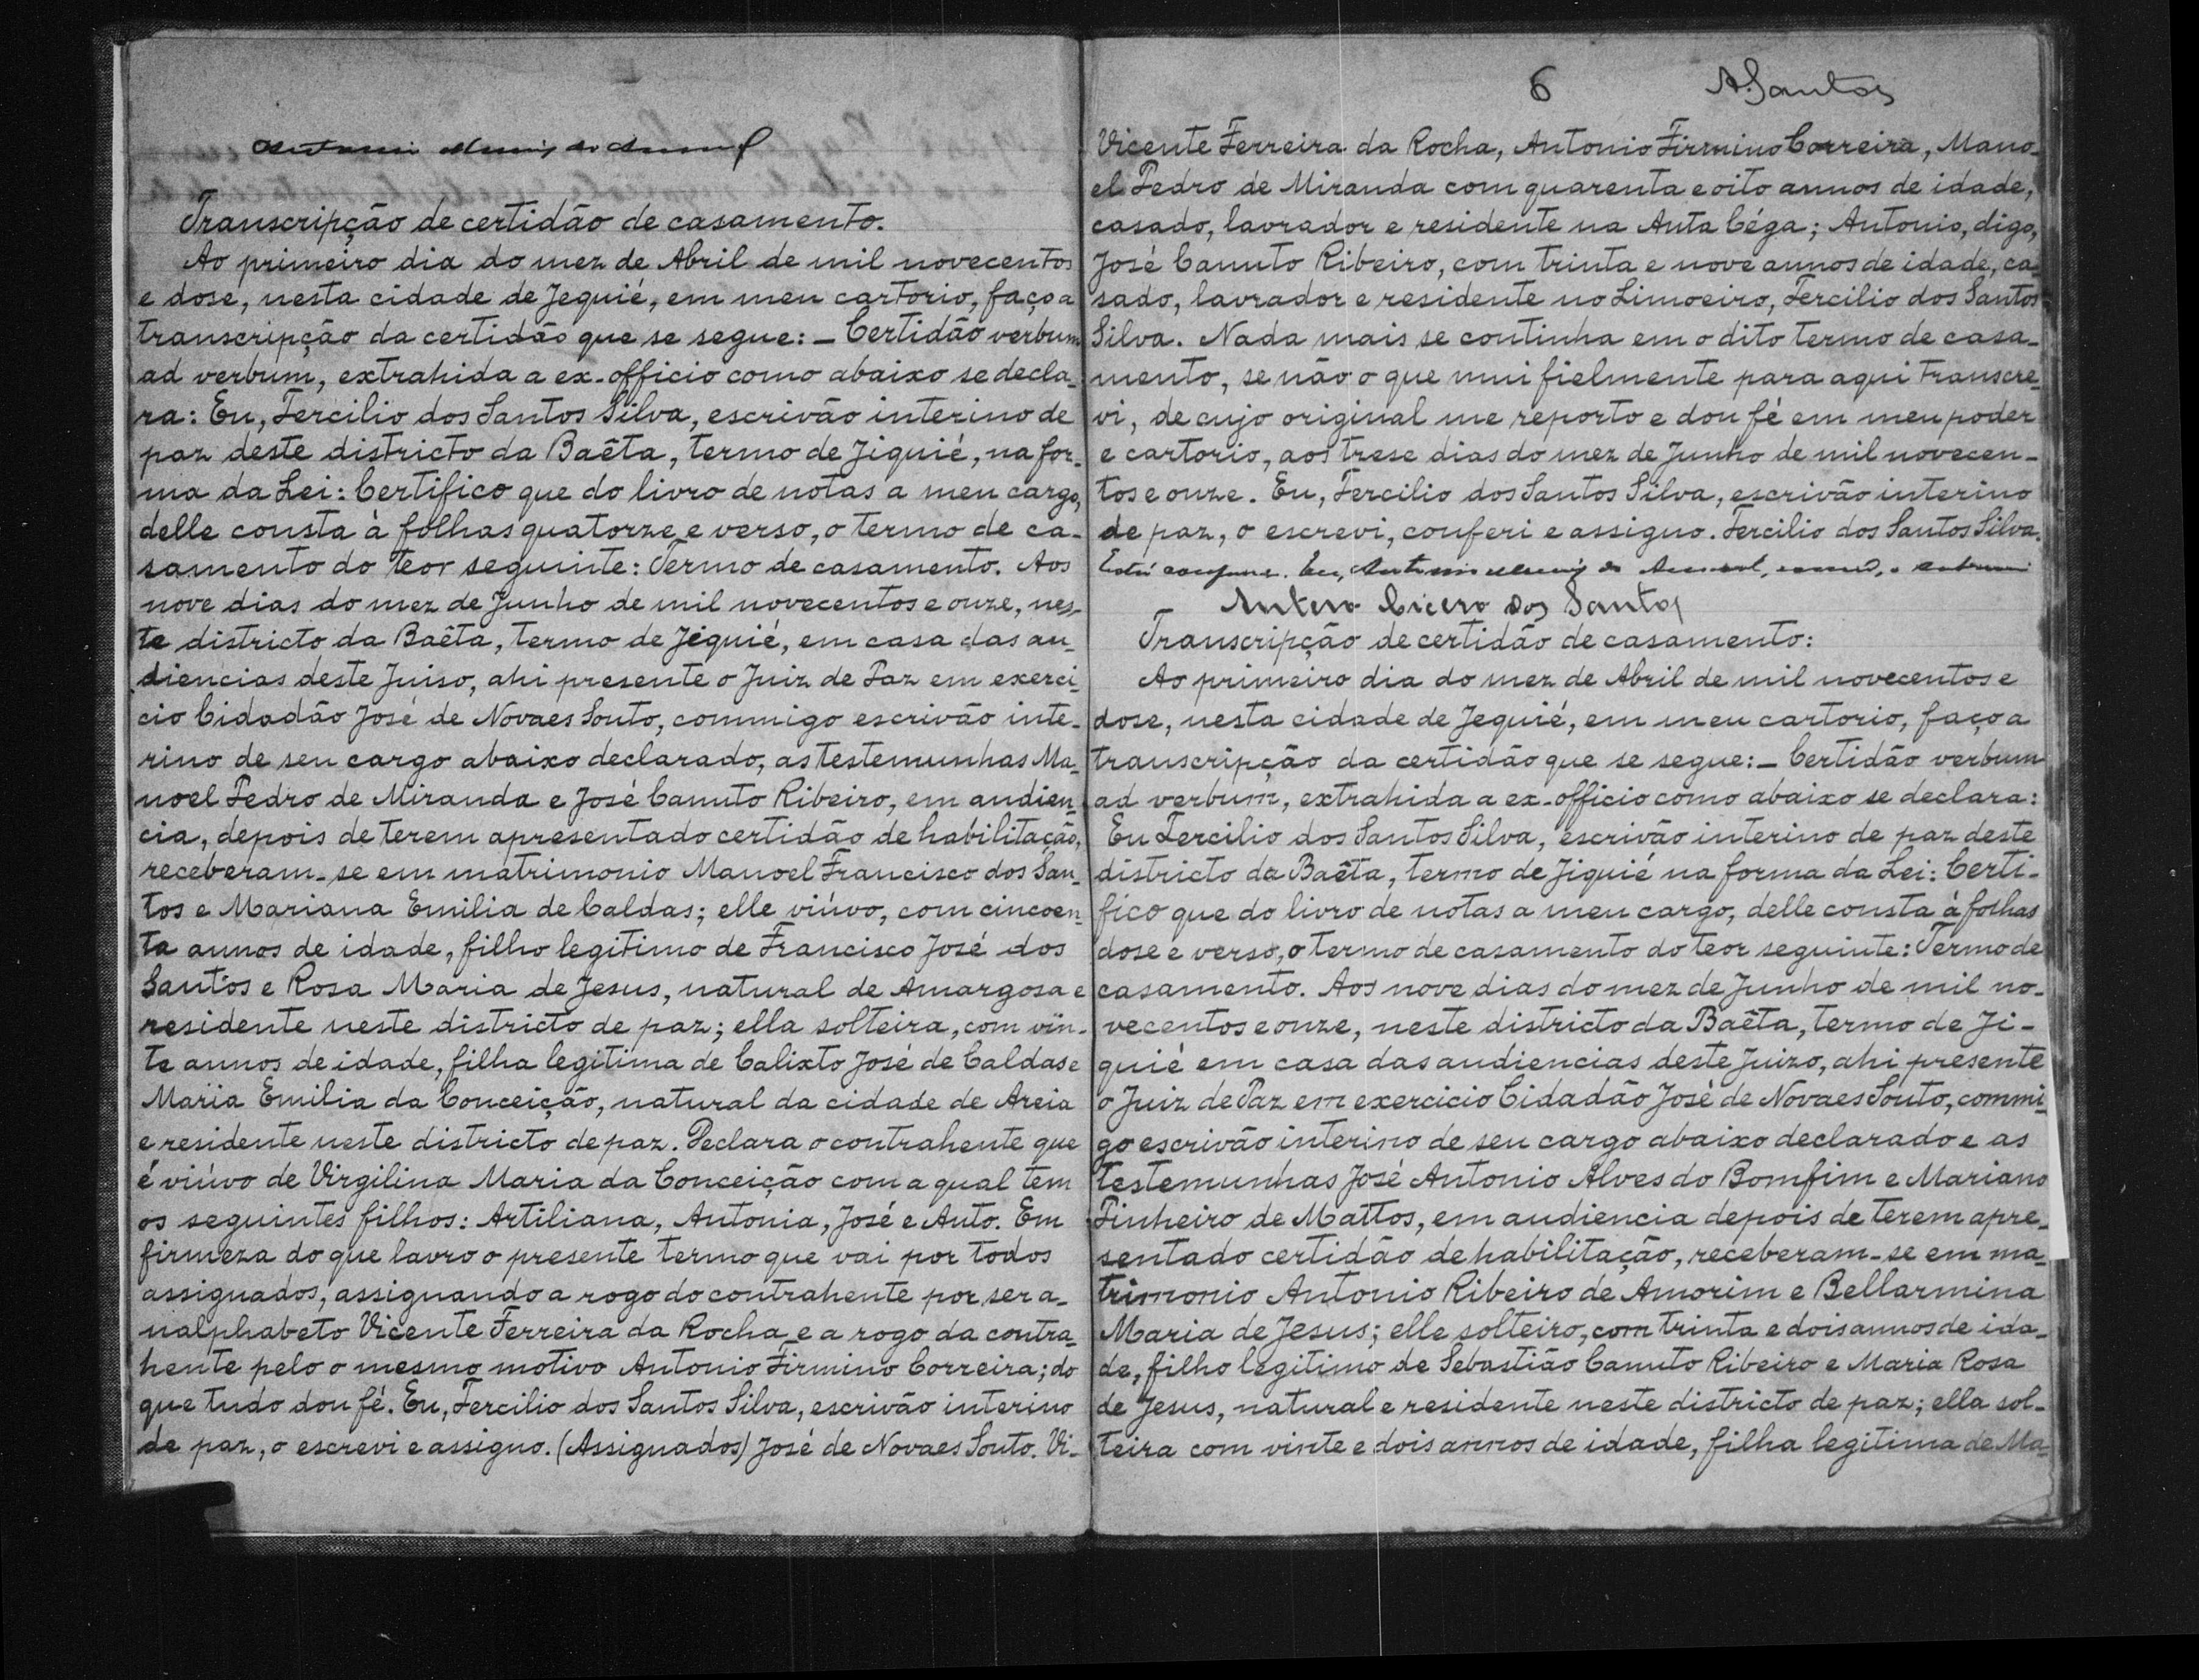 Antonio Muniz do
Transcripção de certidão de casamento.
Ao primeiro dia do mez de Abril de mil novecentos
e dose, nesta cidade de Jequié, em meu cartorio, faço a
transcripção da certidão que se segue: _ Certidão verbum
ad verbum, extrahida a ex-officio como abaixo se decla-
ra: Eu, Tercilio dos Santos Silva, escrivão interino de
paz deste districto da Baêta, termo de Jiquié, na for-
ma da Lei: Certifico que do livro de notas a meu cargo,
delle consta à folhas quatorze e verso, o termo de ca-
samento do teor seguinte: Termo de casamento. Aos
nove dias do mez de Junho de mil novecentos e onze, nes-
te districto da Baêta, termo de Jequié, em casa das au-
diencias deste Juiso, ahi presente o Juiz de Paz em exerci-
cio Cidadão José de Novaes Souto, commigo escrivão inte-
rino de seu cargo abaixo declarado, as testemunhas Ma-
noel Pedro de Miranda e José Canuto Ribeiro, em audien-
cia, depois de terem apresentado certidão de habilitação,
receberam-se em matrimonio Manoel Francisco dos San-
tos e Mariana Emilia de Caldas; elle viúvo, com cincoen-
ta annos de idade, filho legitimo de Francisco José dos
Santos e Rosa Maria de Jesus, natural de Amargosa e
residente neste districto de paz; ella solteira, com vin-
te annos de idade, filha legitima de Calixto José de Caldas e
Maria Emilia da Conceição, natural da cidade de Areia
e residente neste districto de paz. Declara o contrahente que
é viúvo de Virgilina Maria da Conceição com a qual tem
os seguintes filhos: Artiliana, Antonia, José e Auto. Em
firmeza do que lavro o presente termo que vai por todos
assignados, assignando a rogo do contrahente por ser a-
nalphabeto Vicente Ferreira da Rocha e a rogo da contra-
hente pelo o mesmo motivo Antonio Firmino Correira; do
que tudo dou fé. Eu, Tercilio dos Santos Silva, escrivão interino
de paz, o escrevi e assigno. (Assignados) José de Novaes Souto. Vi-
6 A. Santos
Vicente Ferreira da Rocha, Antonio Firmino Correira, Mano-
el Pedro de Miranda com quarenta e oito annos de idade,
casado, lavrador e residente na Anta Céga; Antonio, digo,
José Canuto Ribeiro, com trinta e nove annos de idade, ca-
sado, lavrador e residente no Limoeiro, Tercilio dos Santos
Silva. Nada mais se continha em o dito termo de casa-
mento, se não o que mui fielmente para aqui transcre-
vi, de cujo original me reporto e dou fé em meu poder
e cartorio, aos trese dias do mez de Junho de mil novecen-
tos e onze. Eu, Tercilio dos Santos Silva, escrivão interino
de paz, o escrevi, conferi e assigno. Tercilio dos Santos Silva.
Está conforme. Eu, Antonio Muniz do
Antero Cicero dos Santos
Transcripção de certidão de casamento:
Ao primeiro dia do mez de Abril de mil novecentos e
dose, nesta cidade de Jequié, em meu cartorio, faço a
transcripção da certidão que se segue: _ Certidão verbum
ad verbum, extrahida a ex-officio como abaixo se declara:
Eu Tercilio dos Santos Silva, escrivão interino de paz deste
districto da Baêta, termo de Jiquié na forma da Lei: Certi-
fico que do livro de notas a meu cargo, delle consta à folhas
dose e verso, o termo de casamento do teor seguinte: Termo de
casamento. Aos nove dias do mez de Junho de mil no-
vecentos e onze, neste districto da Baêta, termo de Ji-
quié em casa das audiencias deste Juizo, ahi presente
o Juiz de Paz em exercicio Cidadão José de Novaes Souto, commi-
go escrivão interino de seu cargo abaixo declarado e as
testemunhas José Antonio Alves do Bomfim e Mariano
Pinheiro de Mattos, em audiencia depois de terem apre-
sentado certidão de habilitação, receberam-se em ma-
trimonio Antonio Ribeiro de Amorim e Bellarmina
Maria de Jesus; elle solteiro, com trinta e dois annos de ida-
de, filho legitimo de Sebastião Canuto Ribeiro e Maria Rosa
de Jesus, natural e residente neste districto de paz; ella sol-
teira com vinte e dois annos de idade, filha legitima de Ma-